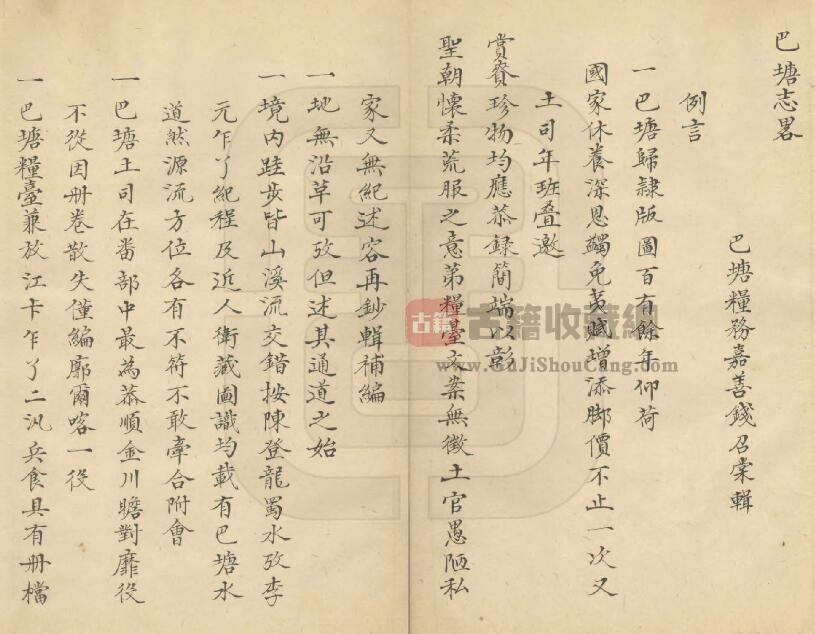 巴塘志畧
巴塘糧務嘉善錢召棠輯
例言
一巴塘歸隸版圖百有餘年仰荷
國家休養深恩蠲免夷賦增添脚價不止一次又
土司年班叠邀
賞賚珍物均應恭録簡端以彰
聖朝懷柔荒服之意弟糧臺文案無徵土官愚陋私
家又無紀述容再鈔輯補編
一地無沿革可攷但述其通道之始
一境内跬步皆山溪流交錯按陳登龍蜀水攷李
元乍丫紀程及近人衛藏圖識均載有巴塘水
道然源流方位各有不符不敢牽合附會
一巴塘土司在番部中最為恭順金川瞻對靡役
不從因册卷散失僅編廓爾喀一役
一巴塘糧臺兼放江卡乍丫二汛兵食具有册檔
古籍
古籍收藏網
www.GuJiShouCang.com